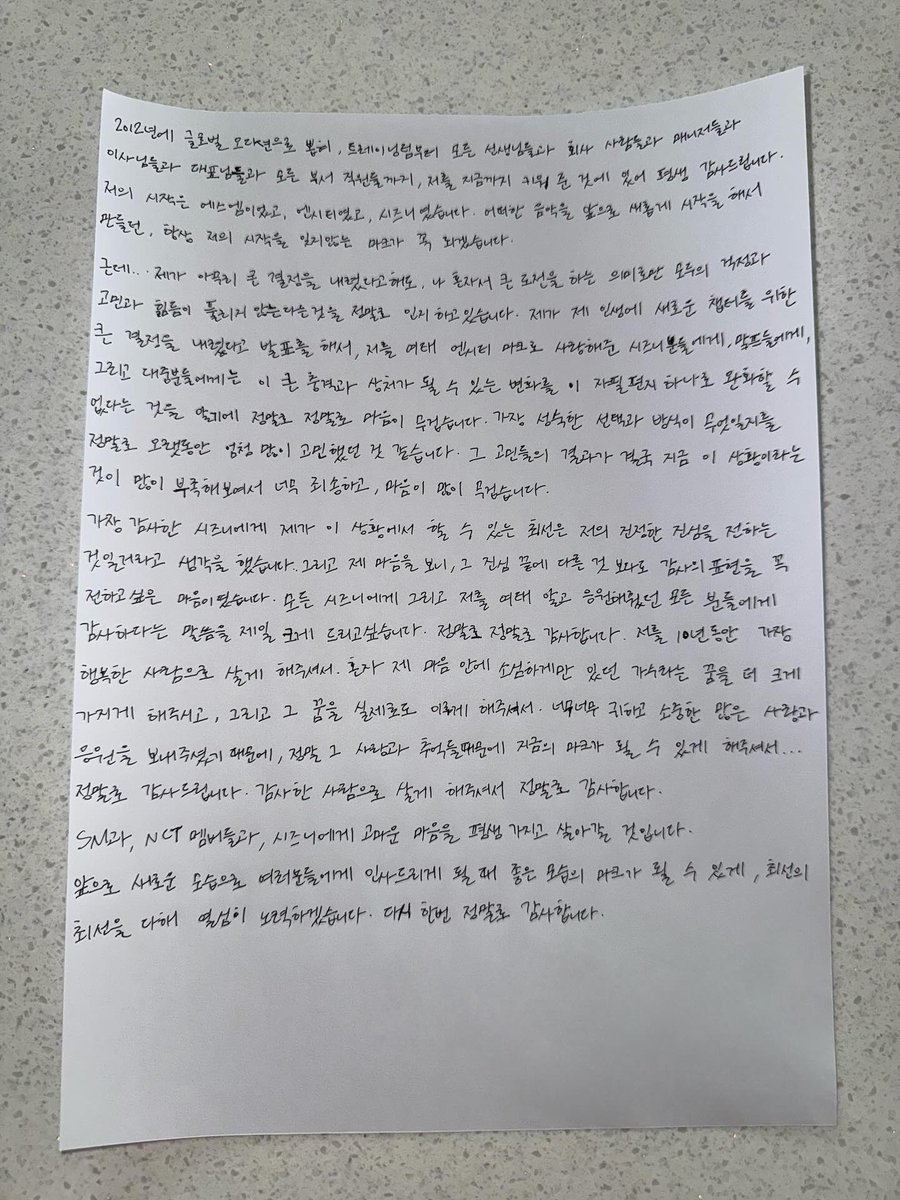 2012년에 글로벌 오디션으로 뽑혀, 트레이닝팀부터 모든 선생님들과 회사 사람들과 매니저들과
이사님들과 대표님들과 모든 부서 직원들까지, 저를 지금까지 키워 준 것에 있어 평생 감사드립니다.
저의 시작은 에스엠이었고, 엔시티였고, 시즈니였습니다. 어떠한 음악을 앞으로 새롭게 시작을 해서
만들던, 항상 저의 시작을 잊지않는 마크가 꼭 되겠습니다.
근데... 제가 아무리 큰 결정을 내렸다고해도, 나 혼자서 큰 도전을 하는 의미로만 모두의 걱정과
고민과 힘듦이 풀리지 않는다는것을 정말로 인지하고있습니다. 제가 제 인생에 새로운 챕터를 위한
큰 결정을 내렸다고 발표를 해서, 저를 여태 엔시티 마크로 사랑해준 시즈니분들에게, 맠프들에게,
그리고 대중분들에게는 이 큰 충격과 상처가 될 수 있는 변화를 이 자필편지 하나로 완화할 수
없다는 것을 알기에 정말로 정말로 마음이 무겁습니다. 가장 성숙한 선택과 방식이 무엇일지를
정말로 오랫동안 엄청 많이 고민했던 것 같습니다. 그 고민들의 결과가 결국 지금 이 상황이라는
것이 많이 부족해보여서 너무 죄송하고, 마음이 많이 무겁습니다.
가장 감사한 시즈니에게 제가 이 상황에서 할 수 있는 최선은 저의 진정한 진심을 전하는
것일거라고 생각을 했습니다. 그리고 제 마음을 보니, 그 진심 끝에 다른 것 보다도 감사의 표현을 꼭
전하고 싶은 마음이였습니다. 모든 시즈니에게 그리고 저를 여태 알고 응원해줬던 모든 분들에게
감사하다는 말씀을 제일 크게 드리고싶습니다. 정말로 정말로 감사합니다. 저를 10년동안 가장
행복한 사람으로 살게 해주셔서. 혼자 제 마음 안에 소심하게만 있던 가수라는 꿈을 더 크게
가지게 해주시고, 그리고 그 꿈을 실제로도 이루게 해주셔서. 너무너무 귀하고 소중한 많은 사랑과
응원을 보내주셨기 때문에, 정말 그 사랑과 추억들때문에 지금의 마크가 될 수 있게 해주셔서...
정말로 감사드립니다. 감사한 사람으로 살게 해주셔서 정말로 감사합니다.
SM과, NCT 멤버들과, 시즈니에게 고마운 마음을 평생 가지고 살아갈 것입니다.
앞으로 새로운 모습으로 여러분들에게 인사드리게 될 때 좋은 모습의 마크가 될 수 있게, 최선의
최선을 다해 열심히 노력하겠습니다. 다시 한번 정말로 감사합니다.